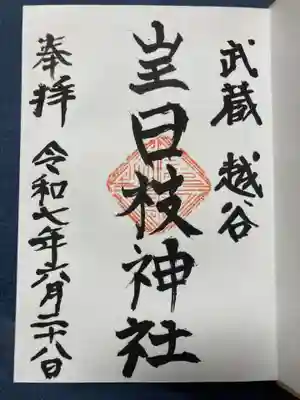 武蔵 越谷
山王日枝神社
奉拝 令和七年六月二十八日